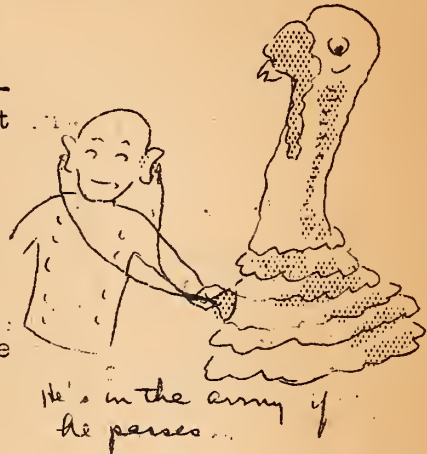 t
e
He's in the army if
he passes...